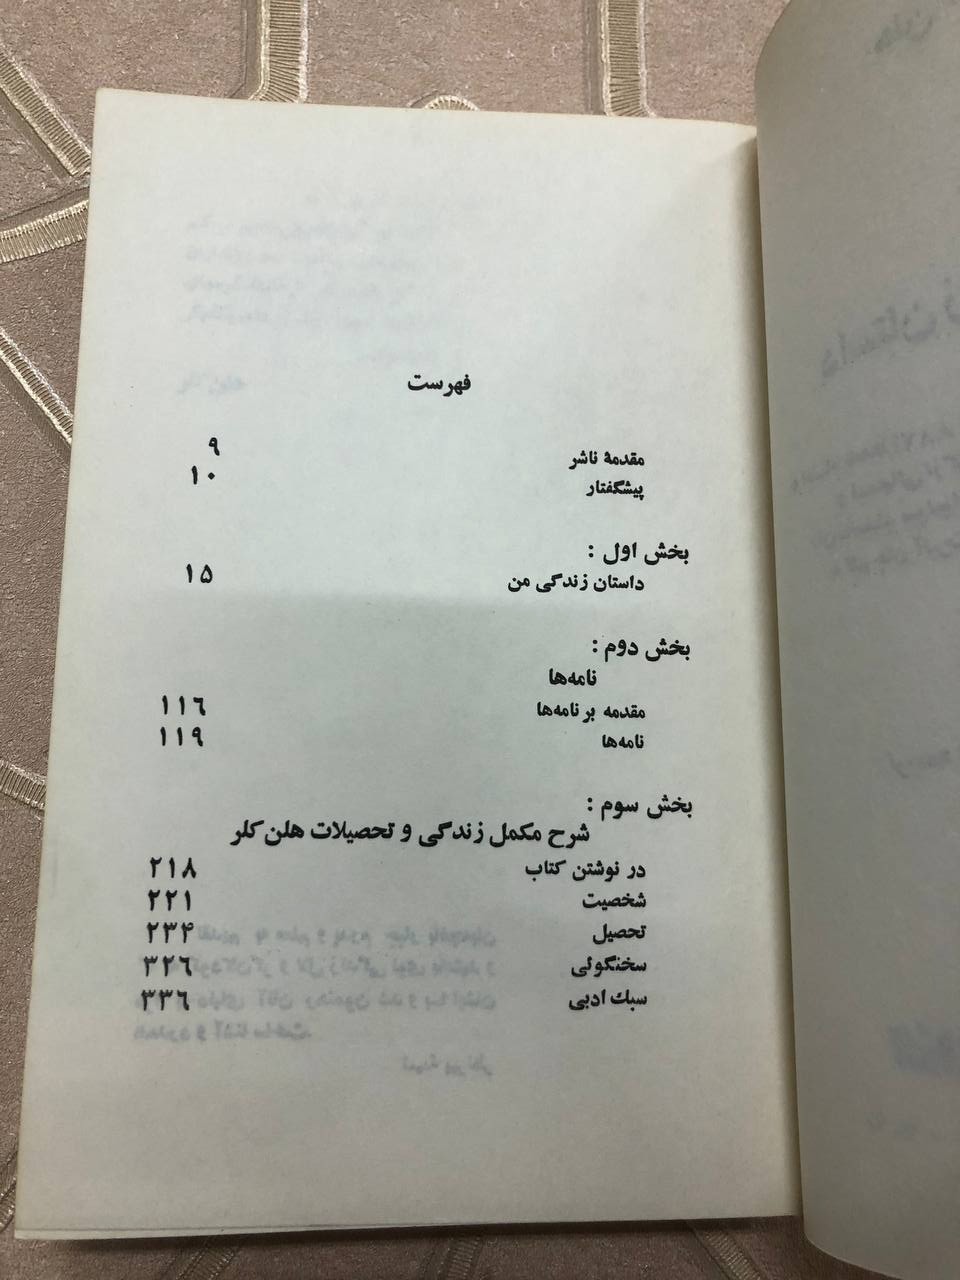 فهرست
مقدمهٔ ناشر ۹
پیشگفتار ۱۰
بخش اول :
داستان زندگی من ۱۵
بخش دوم :
نامه‌ها
مقدمه بر نامه‌ها ۱۱۶
نامه‌ها ۱۱۹
بخش سوم :
شرح مکمل زندگی و تحصیلات هلن کلر
در نوشتن کتاب ۲۱۸
شخصیت ۲۲۱
تحصیل ۲۳۴
سخنگوئی ۳۲۶
سبك ادبی ۳۳۶
داستان